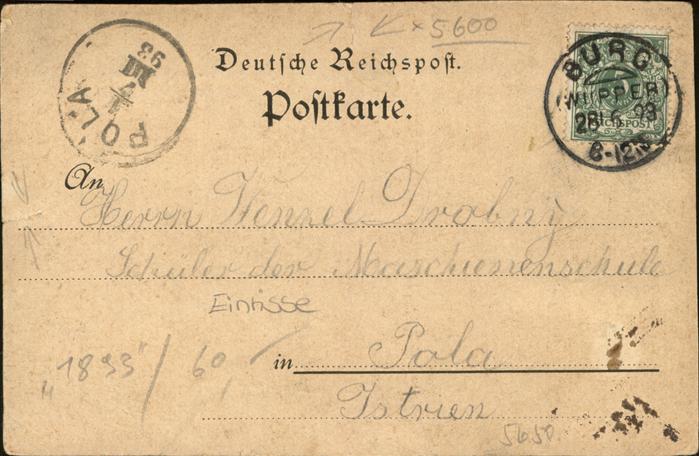 × 5600
Deutsche Reichspost.
Postkarte.
POLA
93
BURG
(WUPPER)
28.6.93
8-12N
REICHSPOST
An
Herrn Wenzel Drobny
Schüler der Maschienenschule
Einrisse
in Pola
"1893" / 60,-
Istrien
5650